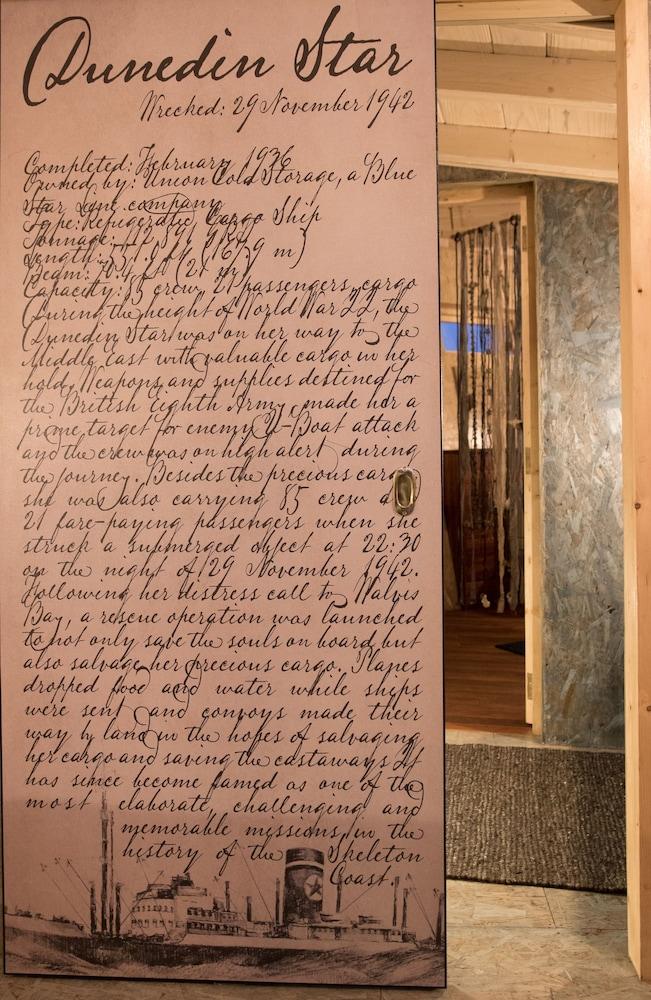 Dunedin Star
Wrecked: 29 November 1942
Completed: February 1936
Owned by: Union Cold Storage, a Blue
Star Line company
Type: Refrigerated Cargo Ship
Tonnage:
Length: ft m)
Beam: 70.4 ft (21 m)
Capacity: 85 crew, 21 passengers, cargo
During the height of World War 22, the
Dunedin Star was on her way to the
Middle East with valuable cargo in her
hold. Weapons and supplies destined for
the British Eighth Army, made her a
prime target for enemy U-Boat attack
and the crew was on high alert during
the journey. Besides the precious cargo
she was also carrying 85 crew
21 fare-paying passengers when she
struck a submerged object at 22:30
on the night of 29 November 1942.
Following her distress call to Walvis
Bay, a rescue operation was launched
to not only save the souls on board but
also salvage her precious cargo. Planes
dropped food and water while ships
were sent and convoys made their
way by land in the hopes of salvaging
her cargo and saving the castaways. It
has since become famed as one of the
most elaborate, challenging and
memorable missions in the
history of the Skeleton
Coast.